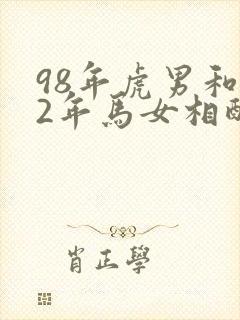 98年虎男和
2年馬女相配
肖正學